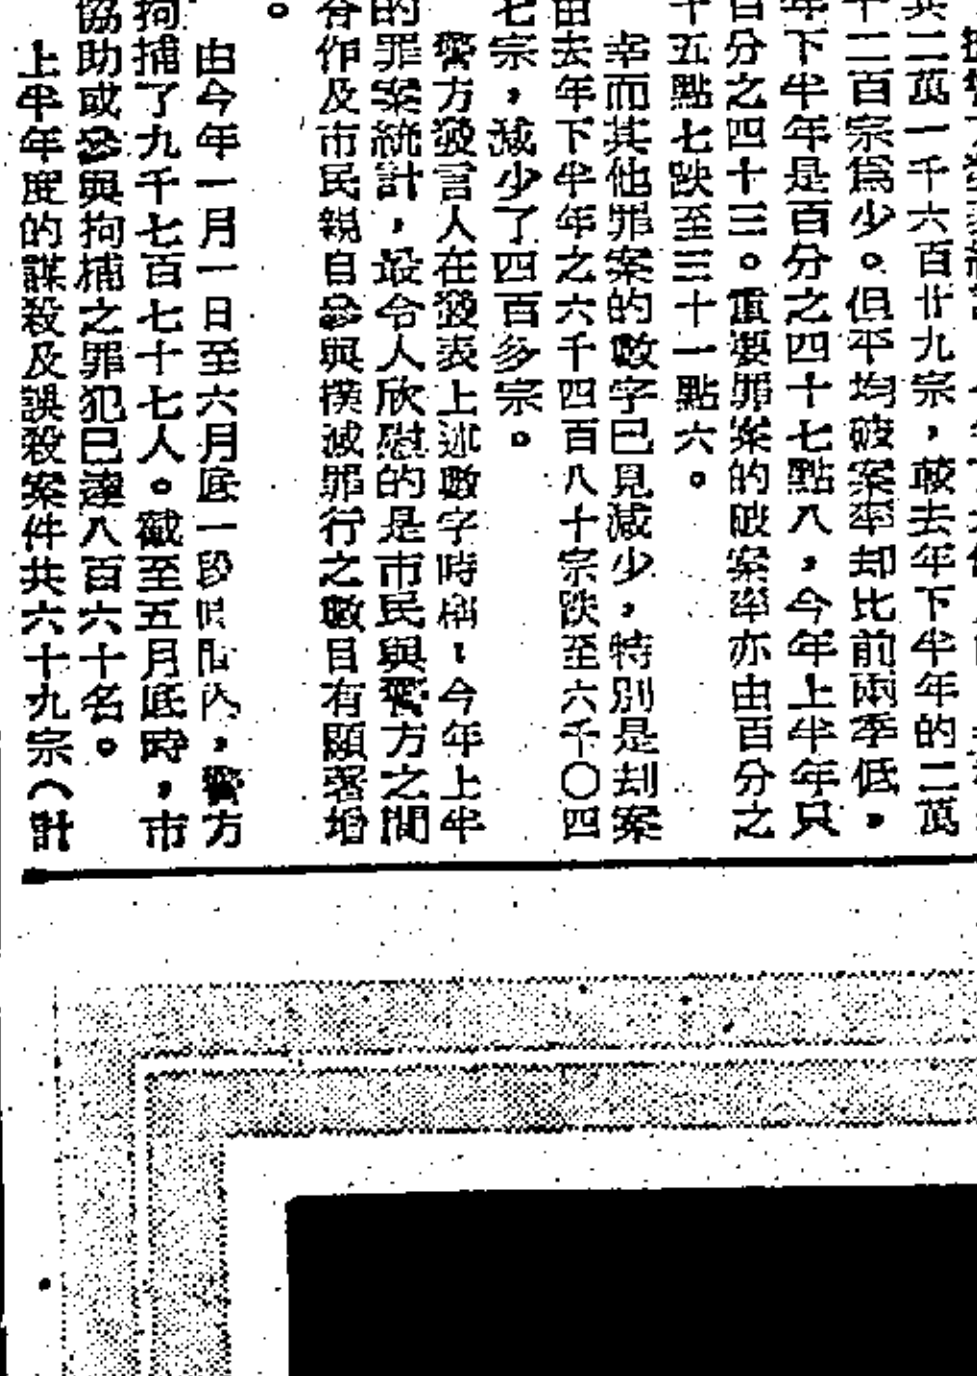 共二萬一千六百廿九宗，較去年下半年的二萬
十二百宗爲少。但平均破案率却比前兩季低，
年下半年是百分之四十七點八，今年上半年只
百分之四十三。重要罪案的破案率亦由百分之
十五點七跌至三十一點六。
幸而其他罪案的數字已見減少，特別是刦案
由去年下半年之六千四百八十宗跌至六千〇四
七宗，減少了四百多宗。
警方發言人在發表上述數字時稱：今年上半
的罪案統計，最令人欣慰的是市民與警方之間
合作及市民親自參與撲滅罪行之數目有顯著增
。
由今年一月一日至六月底一段時間內，警方
拘捕了九千七百七十七人。截至五月底時，市
協助或參與拘捕之罪犯已達八百六十名。
上半年度的謀殺及誤殺案件共六十九宗（計